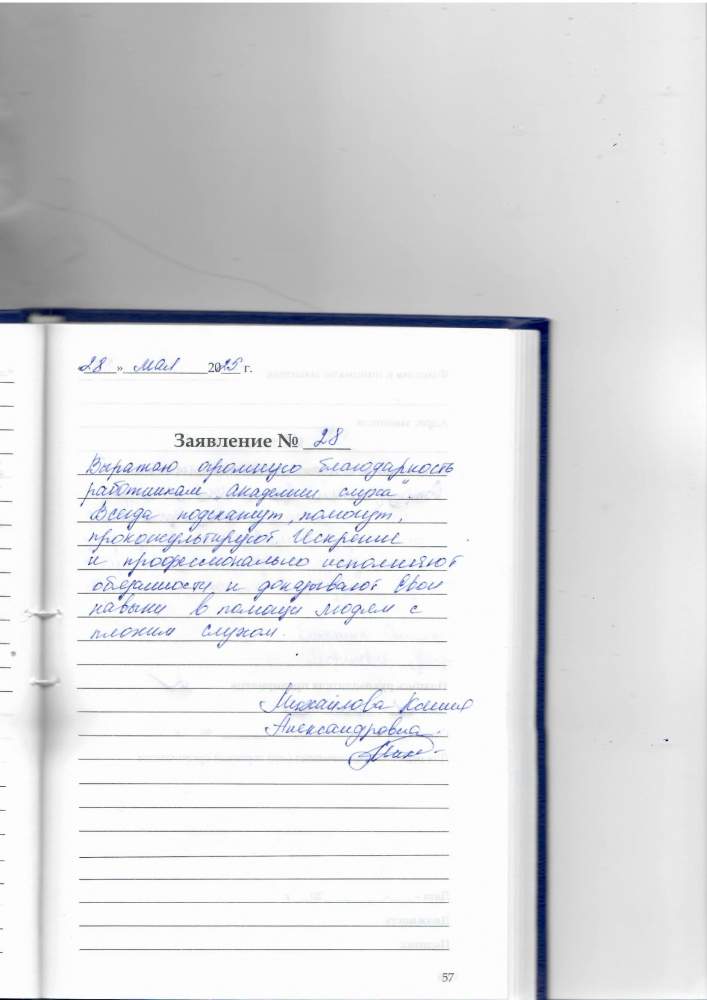 28 » мая 2025 г.
Заявление № 28
Выражаю огромную благодарность
работникам „Академии слуха".
Всегда подскажут, помогут,
проконсультируют. Искренне
и профессионально исполняют
обязанности и доказывают свои
навыки в помощи людям с
плохим слухом.
Михайлова Ксения
Александровна.
57